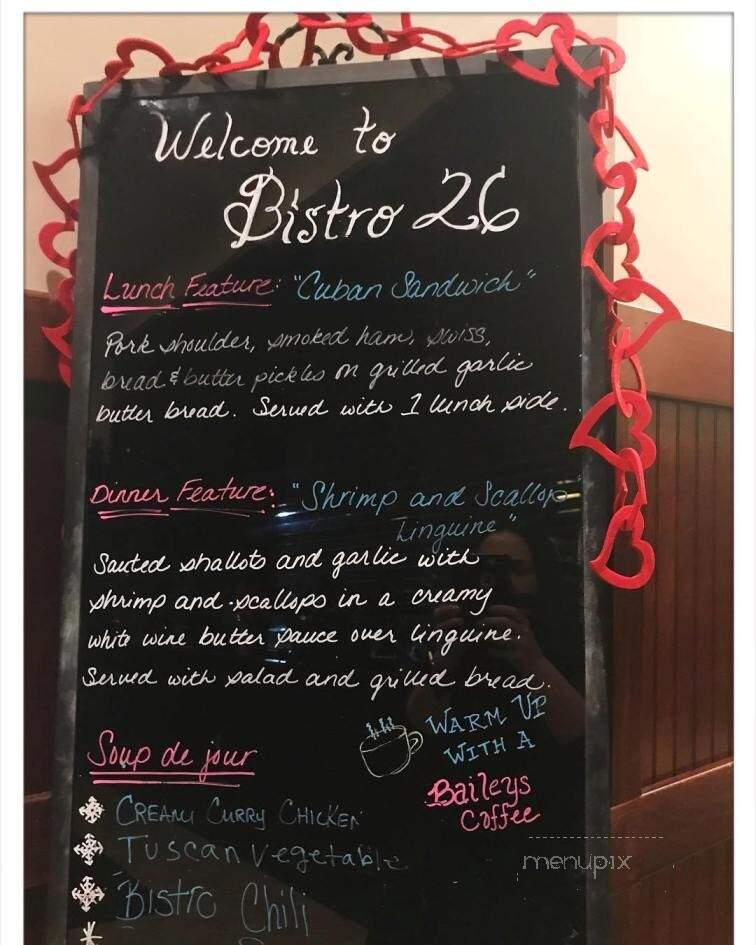 Welcome to
Bistro 26
Lunch Feature: "Cuban Sandwich"
Pork shoulder, smoked ham, swiss,
bread & butter pickles on grilled garlic
butter bread. Served with 1 lunch side.
Dinner Feature: "Shrimp and Scallop
Linguine"
Sauted shallots and garlic with
shrimp and scallops in a creamy
white wine butter sauce over linguine.
Served with salad and grilled bread.
WARM UP
WITH A
Baileys
Coffee
Soup de jour
CREAMY CURRY CHICKEN
Tuscan Vegetable
Bistro Chili
menupix